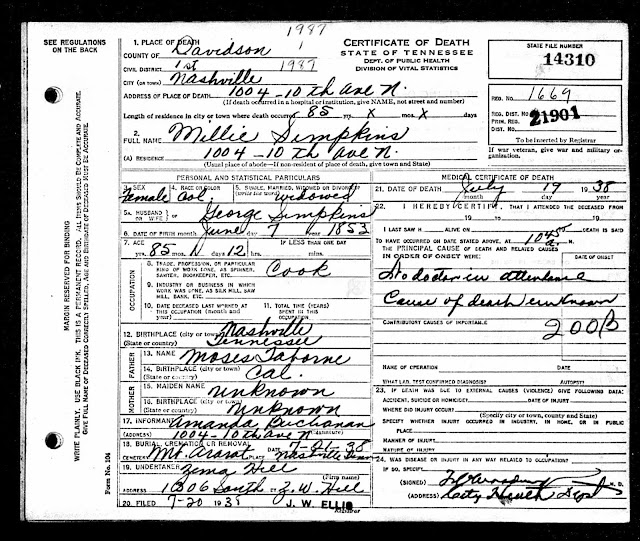 1987
SEE REGULATIONS ON THE BACK
MARGIN RESERVED FOR BINDING
WRITE PLAINLY, USE BLACK INK. THIS IS A PERMANENT RECORD. All Items Should Be Complete and Accurate.
Give Full Name of Deceased Correctly Spelled, Age and Birthdate of Deceased Must Be Accurate.
Form No. 104
CERTIFICATE OF DEATH
STATE OF TENNESSEE
DEPT. OF PUBLIC HEALTH
DIVISION OF VITAL STATISTICS
STATE FILE NUMBER
14310
REG. NO. 1669
REG. DIST. NO.
PRIM. REG. DIST. NO. 21901
To be inserted by Registrar
If war veteran, give war and military organization.
1. PLACE OF DEATH
COUNTY OF Davidson 1
CIVIL DISTRICT 1st 1987
CITY (OR TOWN) Nashville
ADDRESS OF PLACE OF DEATH 1004-10th Ave N.
(If death occurred in a hospital or institution, give NAME, not street and number)
Length of residence in city or town where death occurred 85 yrs. X mos. X days
2. FULL NAME Millie Simpkins
(A) RESIDENCE 1004-10th Ave N.
(Usual place of abode—If non-resident of place of death, give town and State)
PERSONAL AND STATISTICAL PARTICULARS
3. SEX Female
4. RACE OR COLOR Col.
5. SINGLE, MARRIED, WIDOWED OR DIVORCED (write the word) Widowed
5A. HUSBAND OR WIFE OF George Simpkins
6. DATE OF BIRTH June 7 1853
7. AGE 85 yrs. 1 m. 12 days
IF LESS THAN ONE DAY
hrs. min.
OCCUPATION
8. TRADE, PROFESSION, OR PARTICULAR KIND OF WORK DONE, AS SPINNER, SAWYER, BOOKKEEPER, ETC. Cook
9. INDUSTRY OR BUSINESS IN WHICH WORK WAS DONE, AS SILK MILL, SAW MILL, BANK, ETC.
10. DATE DECEASED LAST WORKED AT THIS OCCUPATION (month and year)
11. TOTAL TIME (YEARS) SPENT IN THIS OCCUPATION
12. BIRTHPLACE (city or town) Nashville
(State or country) Tennessee
FATHER
13. NAME Moses Taborne
14. BIRTHPLACE (city or town)
(State or country) Cal.
MOTHER
15. MAIDEN NAME Unknown
16. BIRTHPLACE (city or town)
(State or country) Unknown
17. INFORMANT Amanda Buchanan
(Signature)
(ADDRESS) 1004-10th Ave N
18. BURIAL, CREMATION OR REMOVAL
CEMETERY Mt. Ararat Nashville Tenn
19. UNDERTAKER Zema Hill
(Firm name)
1306 South Z. W. Hill
20. FILED 7-20 1938 J. W. ELLIS
Registrar
MEDICAL CERTIFICATE OF DEATH
21. DATE OF DEATH July 19 1938
month day year
22. I HEREBY CERTIFY, THAT I ATTENDED THE DECEASED FROM
19 TO 19
I LAST SAW H ALIVE ON 19 DEATH IS SAID
TO HAVE OCCURRED ON DATE STATED ABOVE, AT 10 45 a M.
THE PRINCIPAL CAUSE OF DEATH AND RELATED CAUSES
IN ORDER OF ONSET WERE:
No doctor in attendance
Cause of death unknown
CONTRIBUTORY CAUSES OF IMPORTANCE
200B
NAME OF OPERATION DATE OF
WHAT LAB. TEST CONFIRMED DIAGNOSIS? AUTOPSY?
23. IF DEATH WAS DUE TO EXTERNAL CAUSES (VIOLENCE) GIVE FOLLOWING DATA:
ACCIDENT, SUICIDE OR HOMICIDE DATE OF INJURY
WHERE DID INJURY OCCUR?
(Specify city or town, county and State)
SPECIFY WHETHER INJURY OCCURRED IN INDUSTRY, IN HOME, OR IN PUBLIC PLACE
MANNER OF INJURY
NATURE OF INJURY
24. WAS DISEASE OR INJURY IN ANY WAY RELATED TO OCCUPATION?
IF SO, SPECIFY
(SIGNED) M. D.
(ADDRESS) City Health Dept